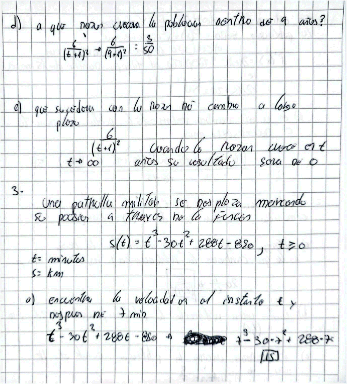 d) a que razon crecera la poblacion dentro de 9 años?
6/(t+1)² → 6/(9+1)² = 3/50
e) que sucedera con la razon de cambio a largo
plazo
6/(t+1)² Cuando la razon crece en t
t → ∞ años su resultado sera de 0
3-
Una patrulla militar se desplaza marcando
su posicion a traves de la funcion
s(t) = t³-30t²+288t-850, t≥0
t = minutos
s = km
a) encuentre la velocidad en el instante t y
despues de 7 min
t³-30t²+288t-850 → 7³-30·7²+288·7-